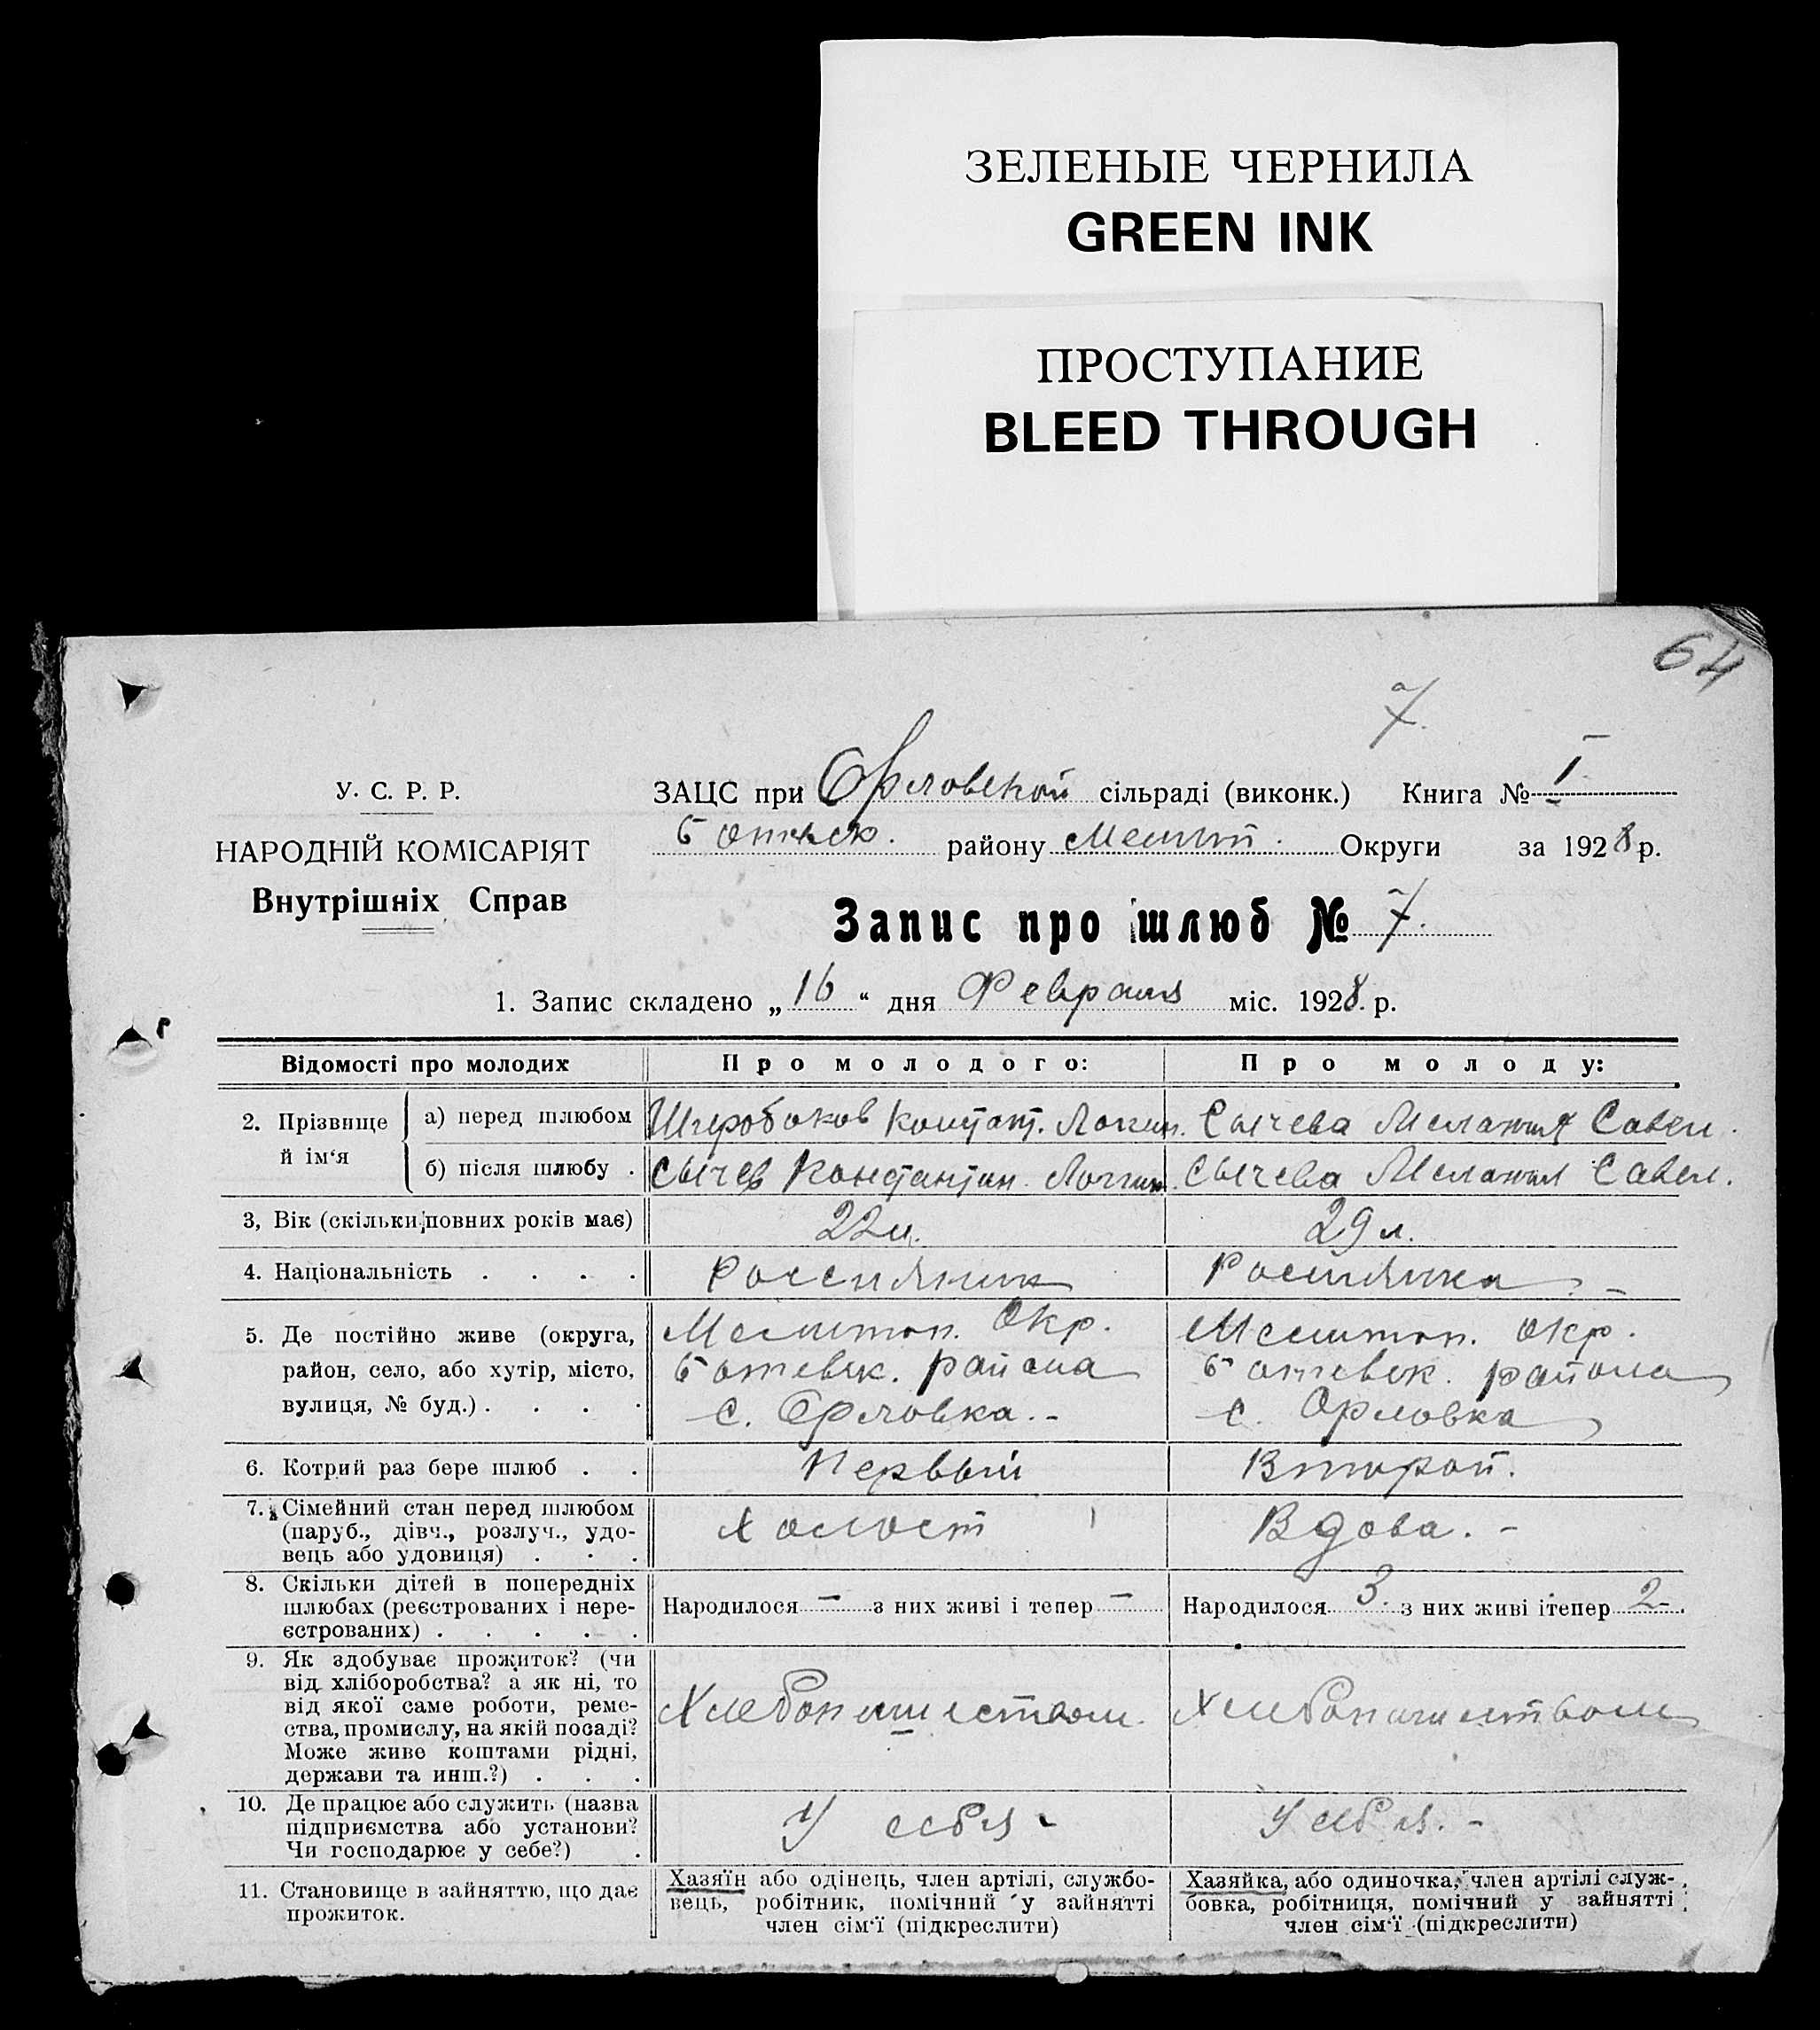 ЗЕЛЕНЫЕ ЧЕРНИЛА
GREEN INK
ПРОСТУПАНИЕ
BLEED THROUGH
64
7.
У. С. Р. Р.
НАРОДНІЙ КОМІСАРІЯТ
Внутрішніх Справ
ЗАЦС при Орловской сільраді (виконк.) Книга № I
району Мелит. Округи за 1928 р.
Запис про шлюб № 7.
1. Запис складено „16“ дня Февраля міс. 1928. р.
Відомості про молодих Про молодого: Про молоду:
2. Прізвище й ім‘я
а) перед шлюбом Константин. Логин. Сычева Мелания Савел.
б) після шлюбу . Сычев Константин. Логин. Сычева Мелания Савел.
3, Вік (скільки повних років має) 22 л. 29 л.
4. Національність . . . . Россиянин Россиянка. -
5. Де постійно живе (округа,
район, село, або хутір, місто,
вулиця, № буд.) . . . .
Мелитоп. Окр.
Ботевск. района
с. Орловка. -
Мелитоп. Окр.
Ботевск. района
с. Орловка
6. Котрий раз бере шлюб . . Первый Второй.
7. Сімейний стан перед шлюбом
(паруб., дівч., розлуч., удо-
вець або удовиця) . . .
Холост Вдова. -
8. Скільки дітей в попередніх
шлюбах (реєстрованих і нере-
єстрованих) . . . . .
Народилося — з них живі і тепер — Народилося 3. з них живі ітепер 2.
9. Як здобуває прожиток? (чи
від хліборобства? а як ні, то
від якої саме роботи, реме-
ства, промислу, на якій посаді?
Може живе коштами рідні,
держави та инш.?) . . .
Хлебопашеством. Хлебопашеством
10. Де працює або служить (назва
підприємства або установи?
Чи господарює у себе?) .
У себя - У себя. -
11. Становище в зайняттю, що дає
прожиток.
Хазяїн або одінець, член артілі, службо-
вець, робітник, помічний у зайнятті
член сім‘ї (підкреслити)
Хазяйка, або одиночка, член артілі служ-
бовка, робітниця, помічний у зайнятті
член сім‘ї (підкреслити)